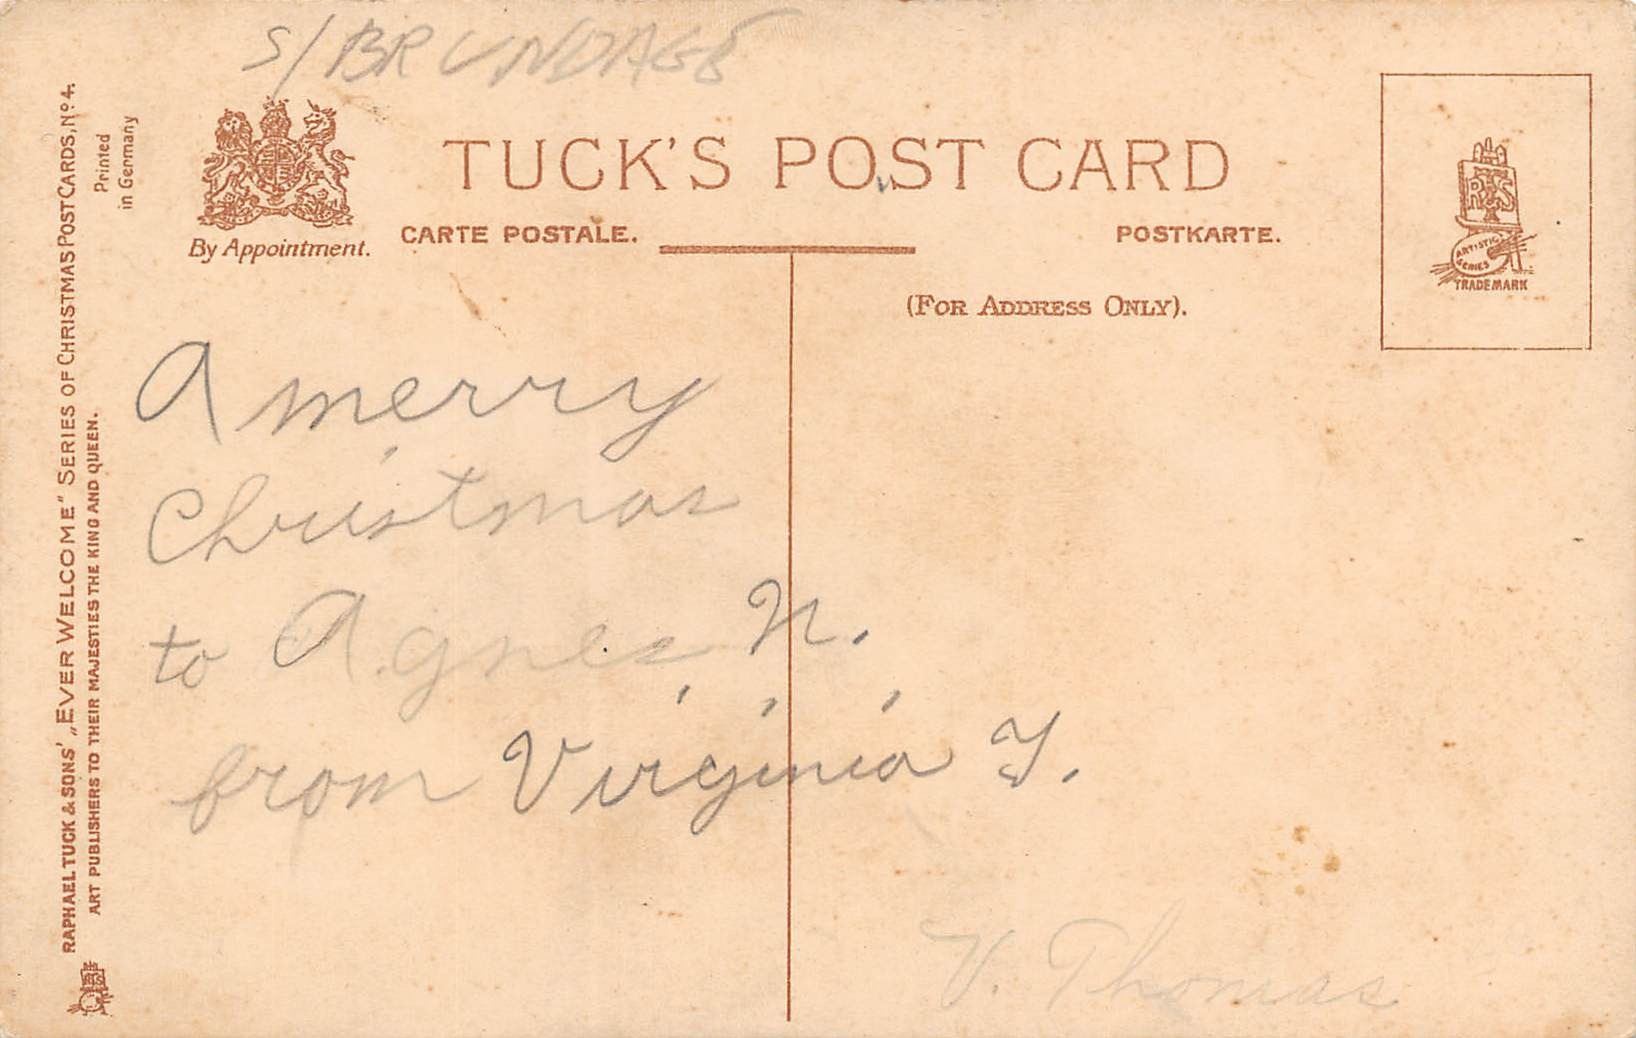 S/BRUNDAGE
TUCK'S POST CARD
By Appointment.
CARTE POSTALE.
POSTKARTE.
(FOR ADDRESS ONLY).
R T S
ARTISTIC
SERIES
TRADE MARK
RAPHAEL TUCK & SONS' „EVER WELCOME" SERIES OF CHRISTMAS POST CARDS, No 4.
ART PUBLISHERS TO THEIR MAJESTIES THE KING AND QUEEN.
Printed
in Germany
A merry
Christmas
to Agnes N.
from Virginia T.
V. Thomas